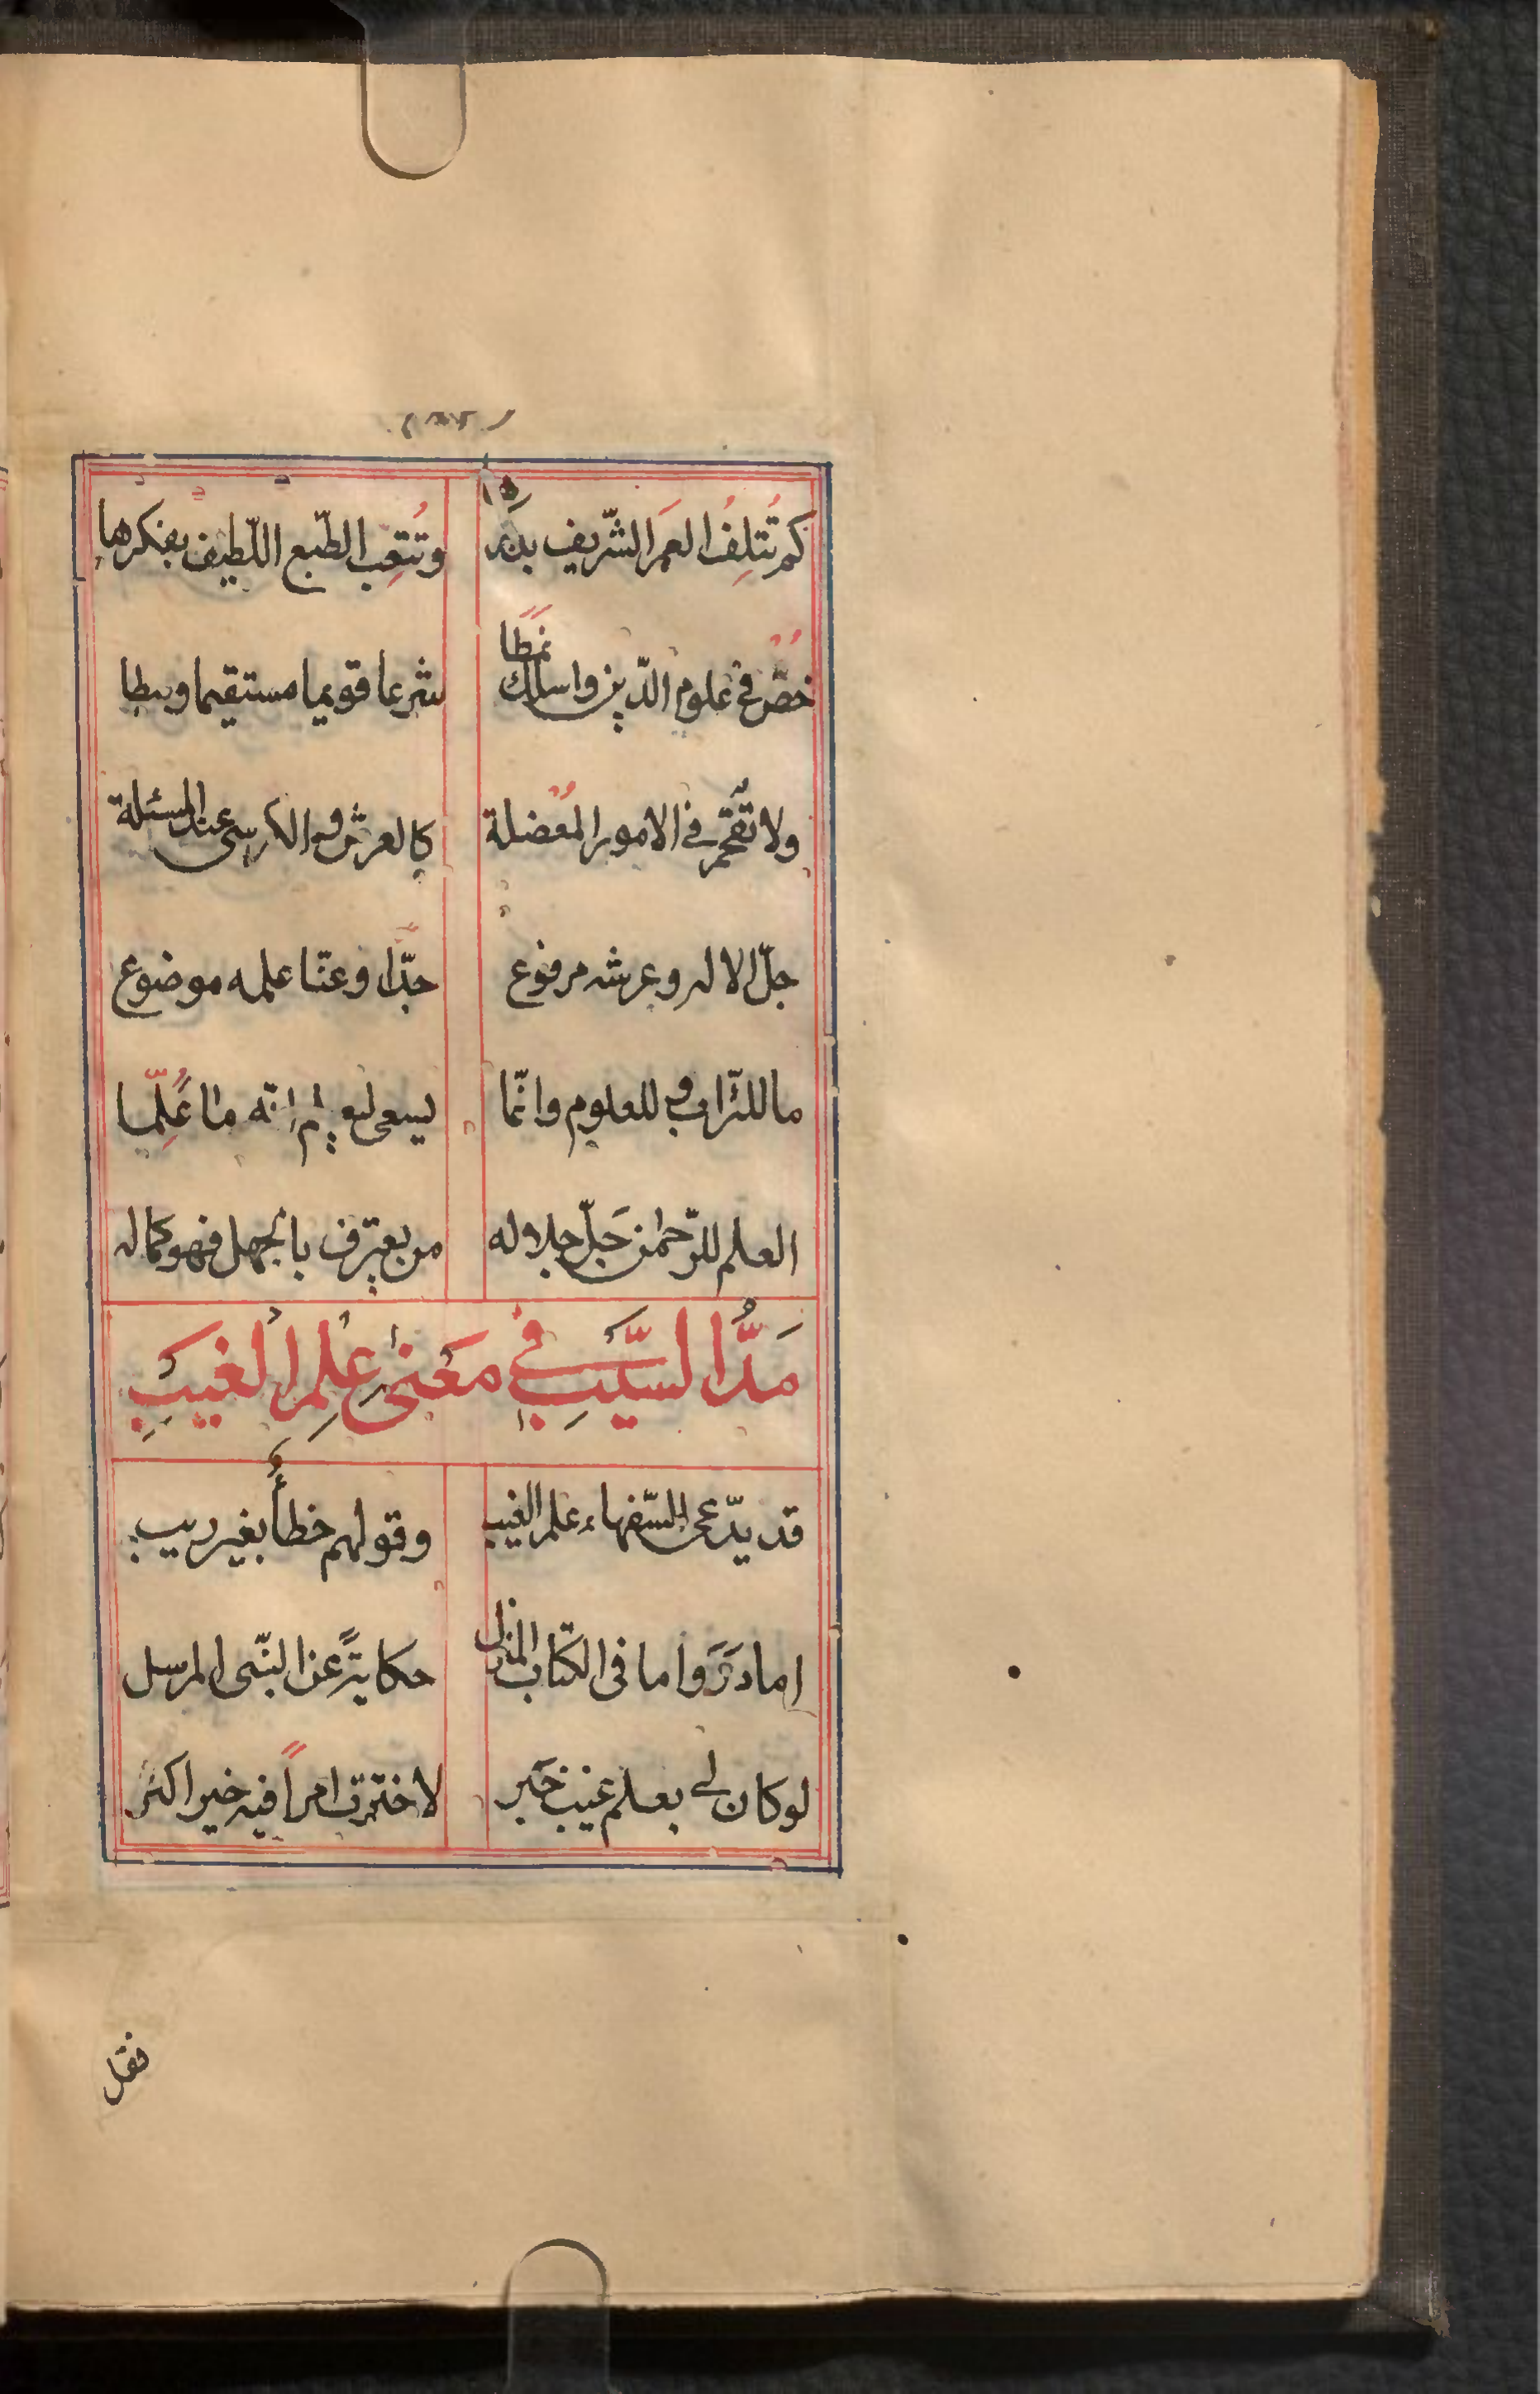 كم تُتلِفُ العمَر الشّريف بذكرها وتُتعِب الطّبع اللّطيف بفكرها
خُض في علوم الدّين واسلك نمطًا شرعا قويما مستقيما وسطا
ولا تقتحم في الامور المُعضلة كالعرش والكرسي عند المسئلة
جلّ الاله وعرشه مرفوع جدًّا وعنّا علمه موضوع
ما للتّراب وللعلوم وانّما يسعى ليعلم انّه ما عُلِّما
العلم للرّحمٰن جَلّ جلاله من يعترف بالجهل فهو كماله
مَدُّ السَّيبِ في مَعنىٰ عِلمِ الغَيبِ
قد يدّعى السّفهاء علم الغيب وقولهم خطأٌ بغير ريب
اما دَرَوا ما فى الكتاب المنزل حكايةً عن النّبى المرسل
لو كان لي بعلم غيب خبر لاخترت امراً فيه خير اكثر
فقل